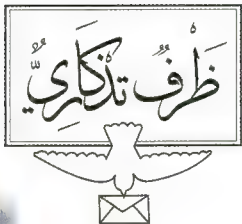 ظَرْفٌ تِذْكَارِيٌّ